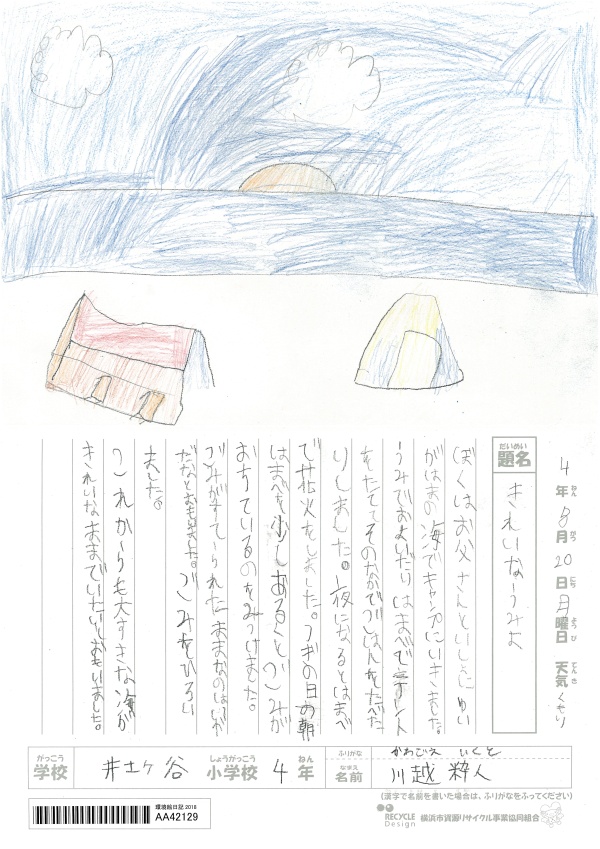 4年ねん8月がつ20日にち月曜日ようび 天気てんき くもり
題名だいめい
きれいなうみよ
ぼくはお父さんといっしょにゆい
がはまの海でキャンプにいきました。
うみでおよいだりはまべでテント
をたててそのなかでごはんをたべた
りしました。夜になるとはまべ
で花火をしました。つぎの日の朝
はまべを少しあるくとごみが
おちているのをみつけました。
ごみがすてられたままなのはいや
だなとおもいました。ごみをひろい
ました。
これからも大すきな海が
きれいなままでいたいとおもいました。
がっこう 学校 井土ヶ谷 しょうがっこう 小学校 4 ねん 年
ふりがな かわごえ いくと
なまえ 名前 川越 粋人
(漢字で名前を書いた場合は、ふりがなをふってください)
環境絵日記2018
AA42129
RECYCLE Design 横浜市資源リサイクル事業協同組合